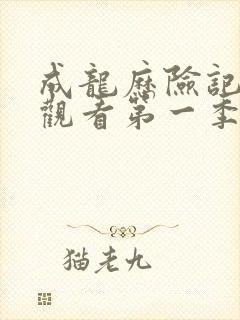 成龍歷險記
觀者第一季
猫老九